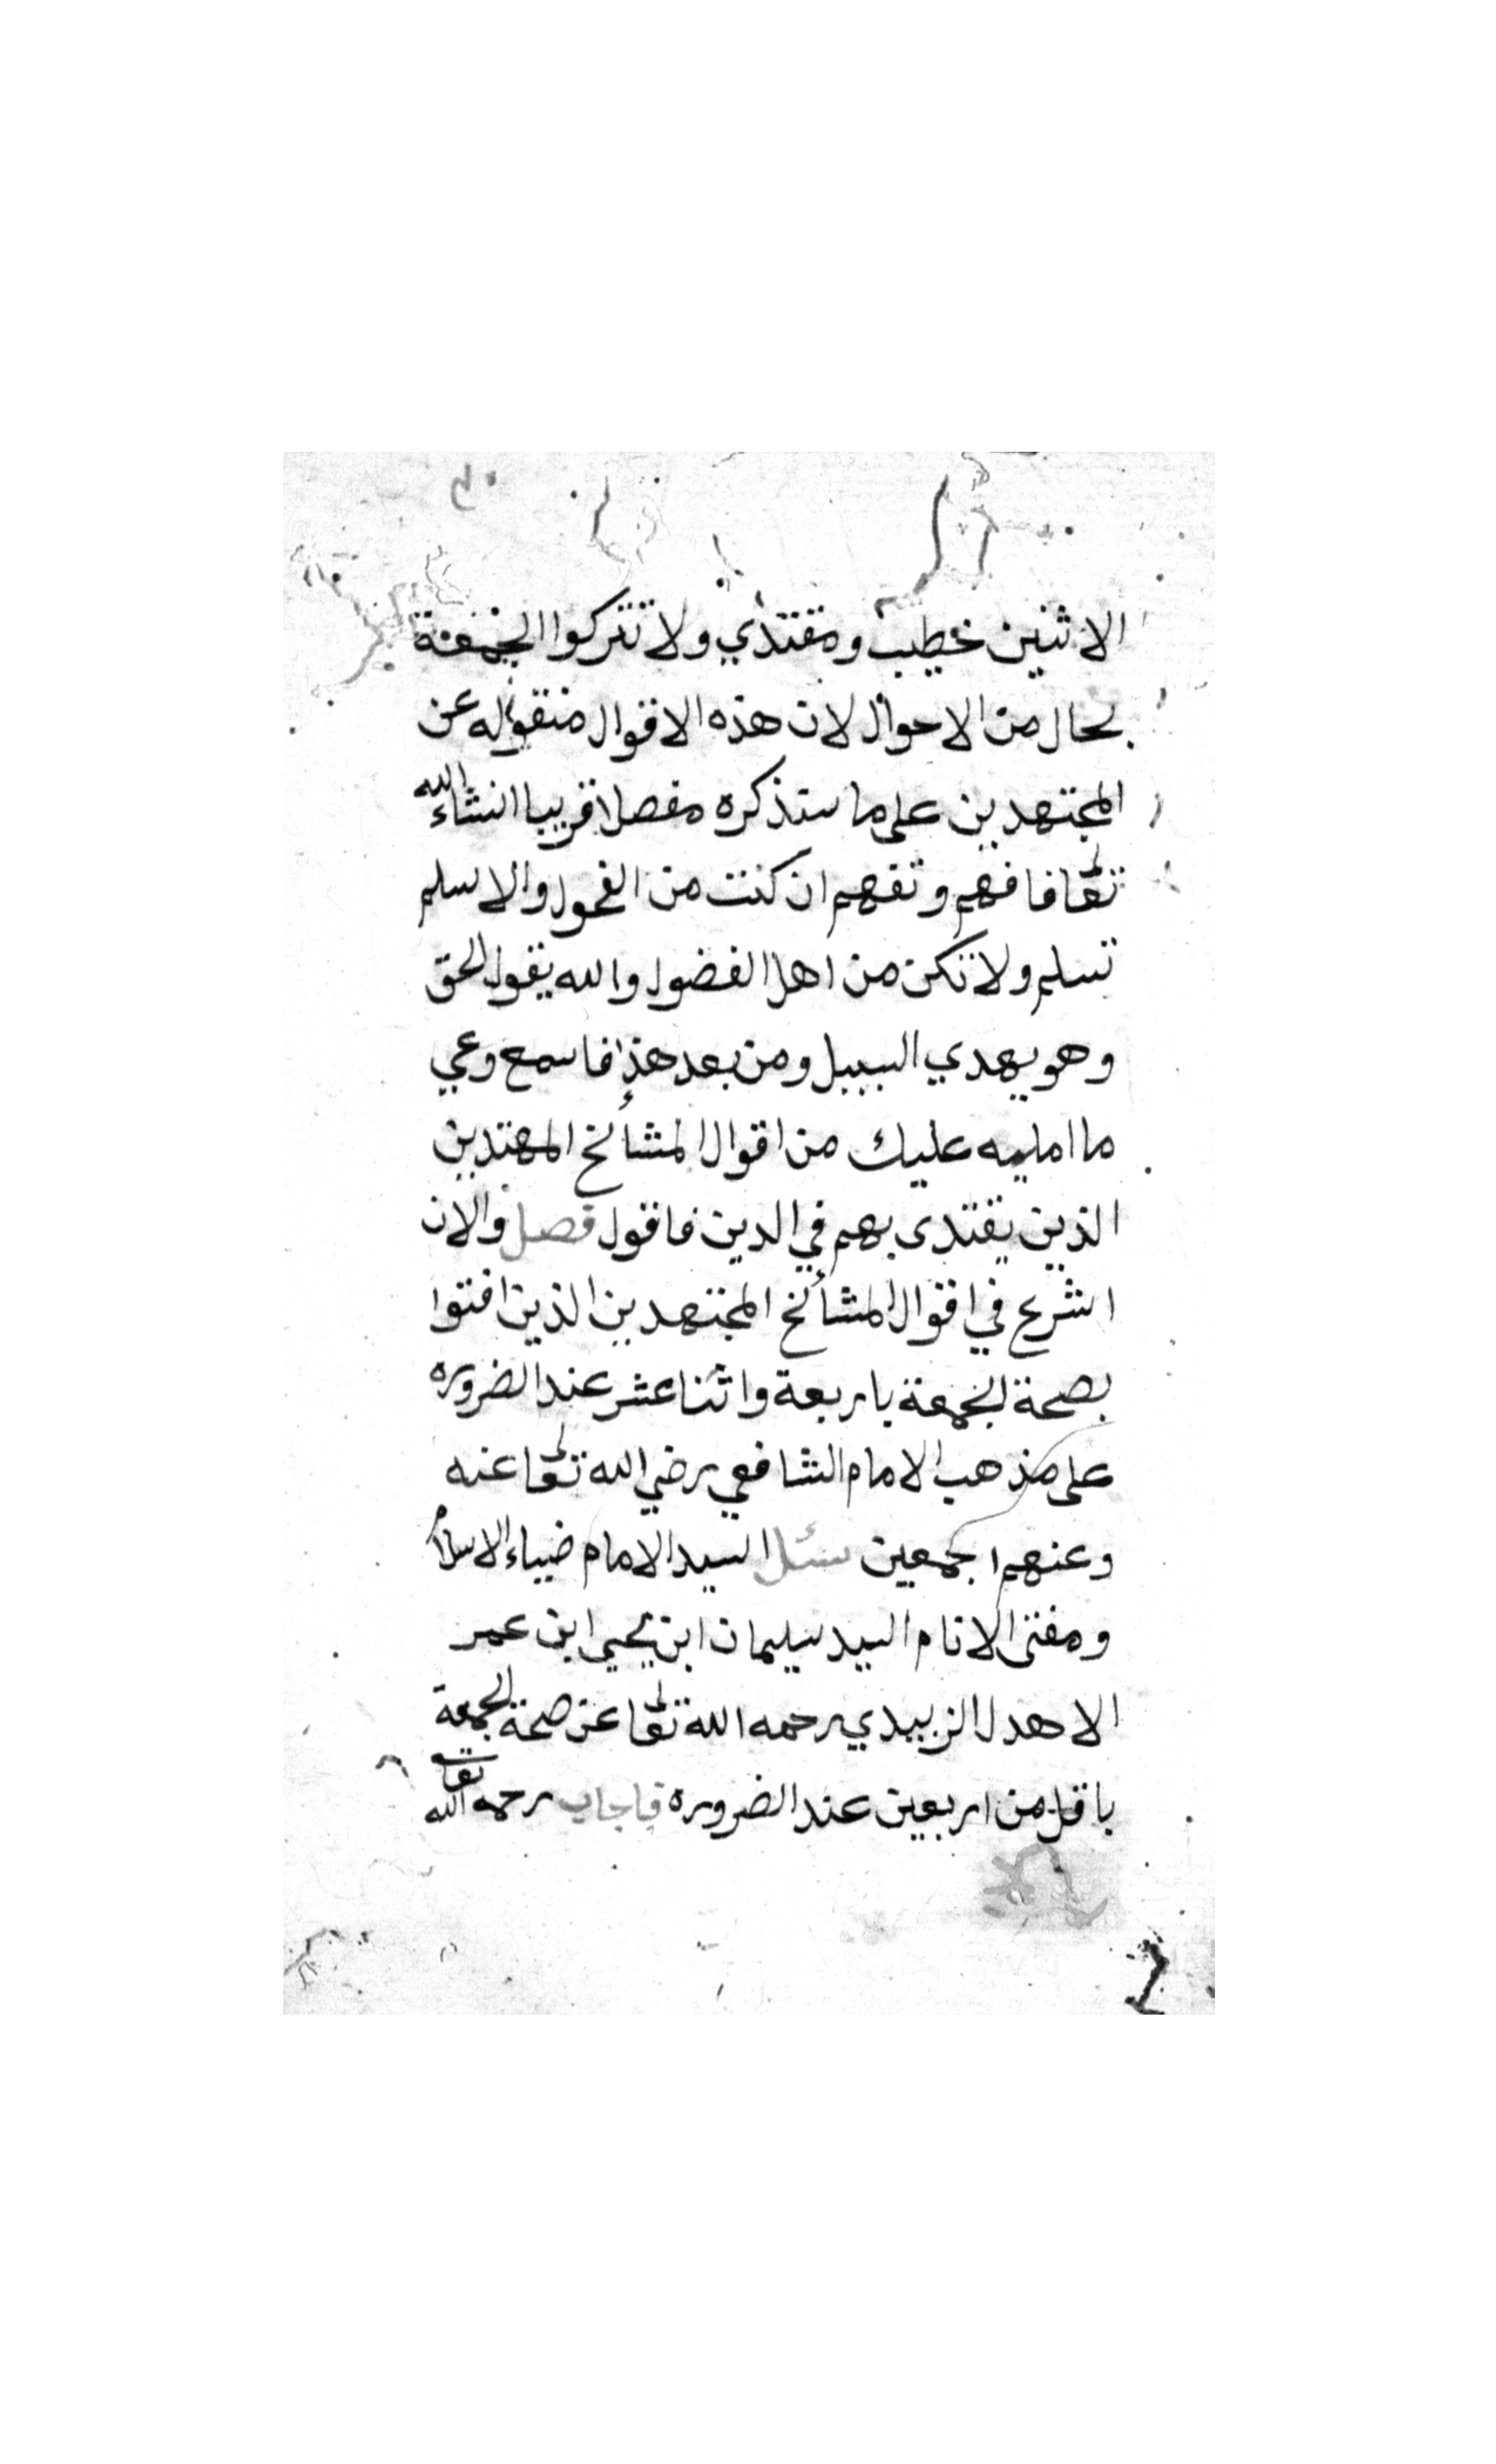 الاثنين خطيب ومقتدي ولا تتركوا الجمعة
بحال من الاحوال لان هذه الاقوال منقوله عن
المجتهدين على ما ستذكره مفصلا قريبا انشاء الله
تعالى فافهم وتفهم ان كنت من الفحول والا سلم
تسلم ولا تكن من اهل الفضول والله يقول الحق
وهو يهدي السبيل ومن بعد هذا فاسمع وعي
ما امليه عليك من اقوال المشائخ المهتدين
الذين يقتدى بهم في الدين فاقول فصل والان
اشرع في اقوال المشائخ المجتهدين الذين افتوا
بصحة الجمعة باربعة واثنا عشر عند الضروره
على مذهب الامام الشافعي رضي الله تعالى عنه
وعنهم اجمعين سئل السيد الامام ضياء الاسلام
ومفتى الانام السيد سليمان ابن يحيى ابن عمر
الاهدل الزبيدي رحمه الله تعالى عن صحة الجمعة
باقل من اربعين عند الضروره فاجاب رحمه الله تعا